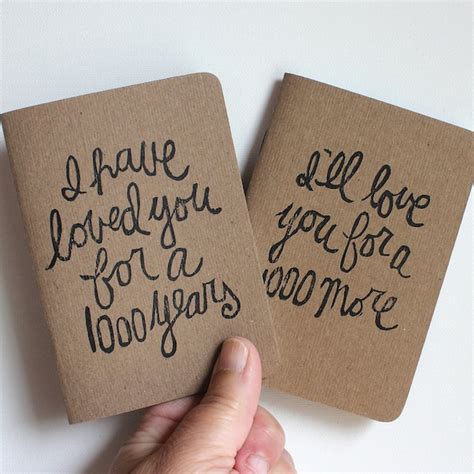 I have
loved you
for a
1000 years
I'll love
you for a
1000 more